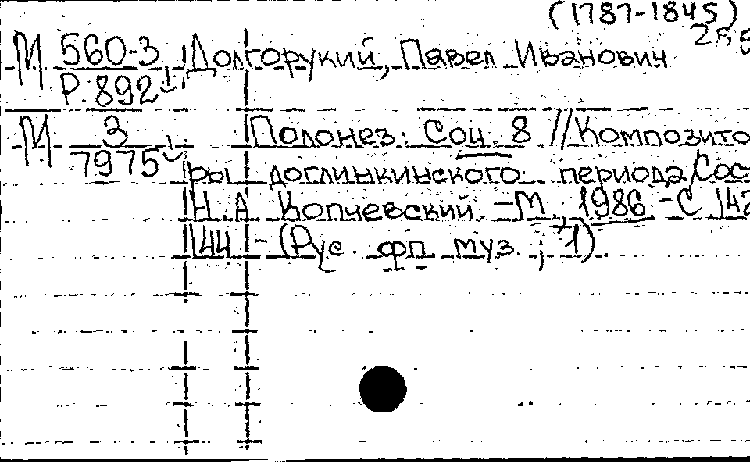 (1787-1845)
М 560-3 Долгорукий, Павел Иванович
Р.892
М 3 Полонез. Соч. 8 // Композито
7975 ры доглинкинского периода/Сос
Н.А Копчевский. - М., 1986 - С 142
144 - (Рус. фп муз. ; 1)